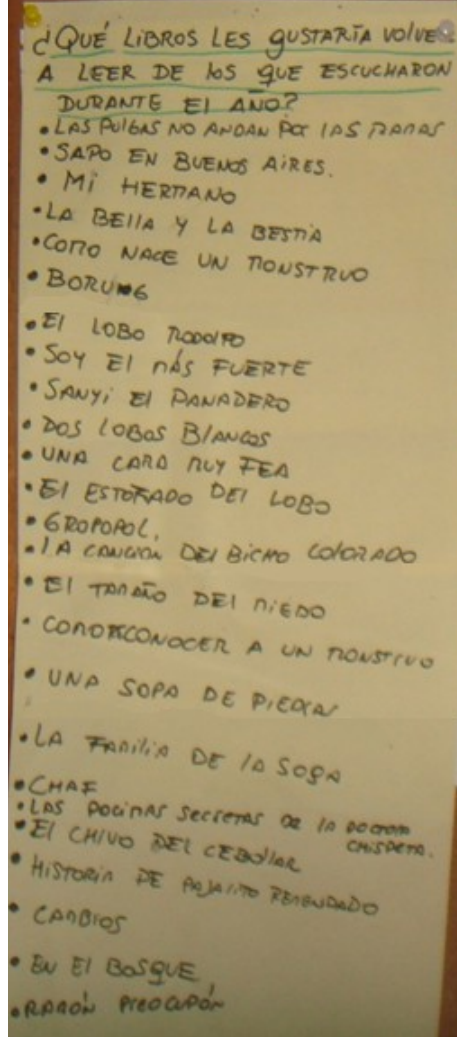 ¿QUÉ LIBROS LES GUSTARÍA VOLVER
A LEER DE LOS QUE ESCUCHARON
DURANTE EL AÑO?
• LAS PULGAS NO ANDAN POR LAS RAMAS
• SAPO EN BUENOS AIRES.
• MI HERMANO
• LA BELLA Y LA BESTIA
• COMO NACE UN MONSTRUO
• EL LOBO RODOLFO
• SOY EL MÁS FUERTE
• SANYI EL PANADERO
• DOS LOBOS BLANCOS
• UNA CARA MUY FEA
• EL ESTOFADO DEL LOBO
• GROPOPOL.
• LA CANCION DEL BICHO COLORADO
• EL TAMAÑO DEL MIEDO
• COMO RECONOCER A UN MONSTRUO
• UNA SOPA DE PIEDRAS
• LA FAMILIA DE LA SOGA
• CHAF
• LAS POCIMAS SECRETAS DE LA DOCTORA
CHISPETA.
• EL CHIVO DEL CEBOLLAR
• HISTORIA DE PAJARITO REMENDADO
• CAMBIOS
• EN EL BOSQUE
• RAMÓN PREOCUPÓN